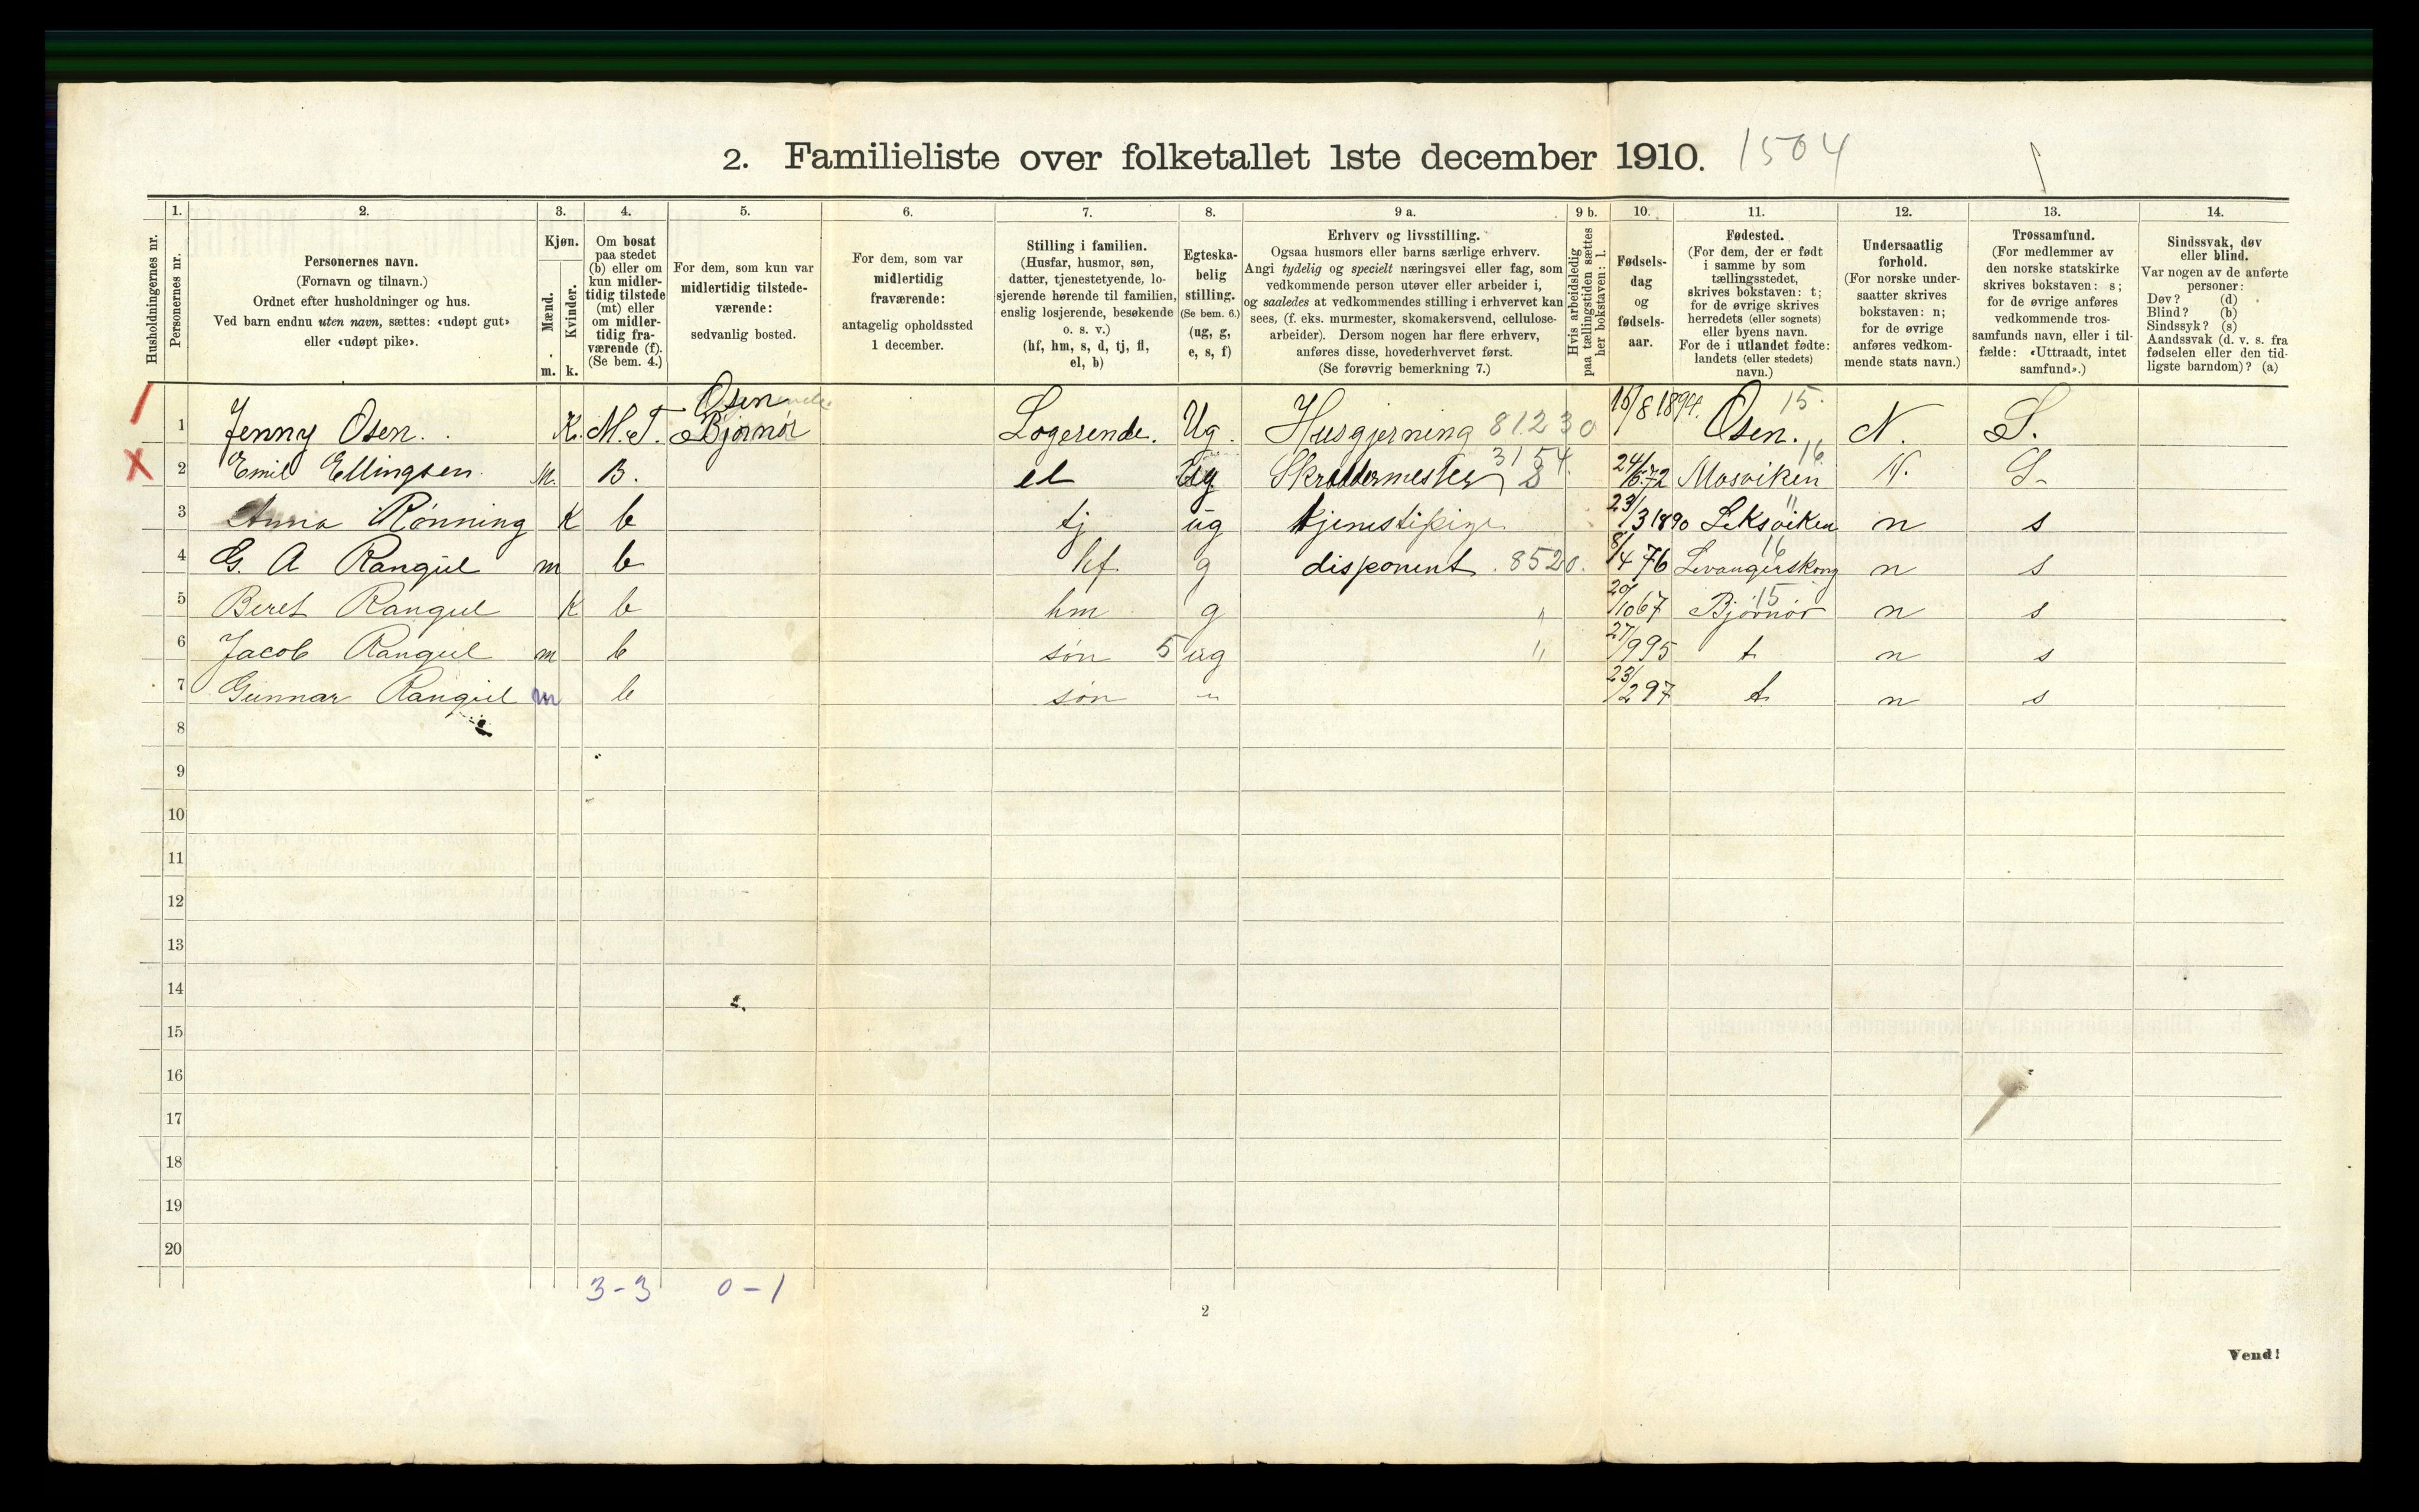 2. Familieliste over folketallet 1ste december 1910. 1504
1. 2. 3. 4. 5. 6. 7. 8. 9 a. 9 b. 10. 11. 12. 13. 14.
Husholdningernes nr.
Personernes nr.
Personernes navn.
(Fornavn og tilnavn.)
Ordnet efter husholdninger og hus.
Ved barn endnu uten navn, sættes: «udøpt gut»
eller «udøpt pike».
Kjøn.
Mænd.
Kvinder.
m. k.
Om bosat
paa stedet
(b) eller om
kun midler-
tidig tilstede
(mt) eller
om midler-
tidig fra-
værende (f).
(Se bem. 4.)
For dem, som kun var
midlertidig tilstede-
værende:
sedvanlig bosted.
For dem, som var
midlertidig
fraværende:
antagelig opholdssted
1 december.
Stilling i familien.
(Husfar, husmor, søn,
datter, tjenestetyende, lo-
sjerende hørende til familien,
enslig losjerende, besøkende
o. s. v.)
(hf, hm, s, d, tj, fl,
el, b)
Egteska-
belig
stilling.
(Se bem. 6.)
(ug, g,
e, s, f)
Erhverv og livsstilling.
Ogsaa husmors eller barns særlige erhverv.
Angi tydelig og specielt næringsvei eller fag, som
vedkommende person utøver eller arbeider i,
og saaledes at vedkommendes stilling i erhvervet kan
sees, (f. eks. murmester, skomakersvend, cellulose-
arbeider). Dersom nogen har flere erhverv,
anføres disse, hovederhvervet først.
(Se forøvrig bemerkning 7.)
Hvis arbeidsledig
paa tællingstiden sættes
her bokstaven: l.
Fødsels-
dag
og
fødsels-
aar.
Fødested.
(For dem, der er født
i samme by som
tællingsstedet,
skrives bokstaven: t;
for de øvrige skrives
herredets (eller sognets)
eller byens navn.
For de i utlandet fødte:
landets (eller stedets)
navn.)
Undersaatlig
forhold.
(For norske under-
saatter skrives
bokstaven: n;
for de øvrige
anføres vedkom-
mende stats navn.)
Trossamfund.
(For medlemmer av
den norske statskirke
skrives bokstaven: s;
for de øvrige anføres
vedkommende tros-
samfunds navn, eller i til-
fælde: «Uttraadt, intet
samfund».)
Sindssvak, døv
eller blind.
Var nogen av de anførte
personer:
Døv? (d)
Blind? (b)
Sindssyk? (s)
Aandssvak (d. v. s. fra
fødselen eller den tid-
ligste barndom)? (a)
Osen
1 Jenny Osen. K. M.T. Bjørnør Logerende. Ug. Husgjerning 81230 15/8 1894. Osen. 15. N. S.
2 Emil Ellingsen M. B. el Ug Skræddermester 3154. 24/6 72 Mosviken 16 N. S.
3 Anna Rønning K b tj ug tjenestipige 23/3 1890 Leksviken 11 n s
4 G. A Rangül m b hf g disponent. 8520. 8/4 76 Levangerskong 16 n s
5 Beret Rangül K b hm g " 20/10 67 Bjørnør 15 n s
6 Jacob Rangül m b søn 5 ug " 27/9 95 t n s
7 Gunnar Rangül m b søn " 23/2 97 t n s
8
9
10
11
12
13
14
15
16
17
18
19
20
3-3 0-1
2
Vend!